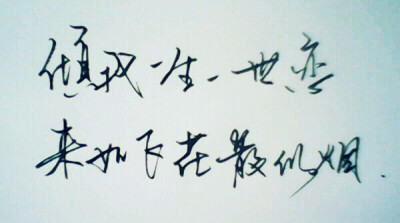 倾我一生一世恋
来如飞花散似烟.